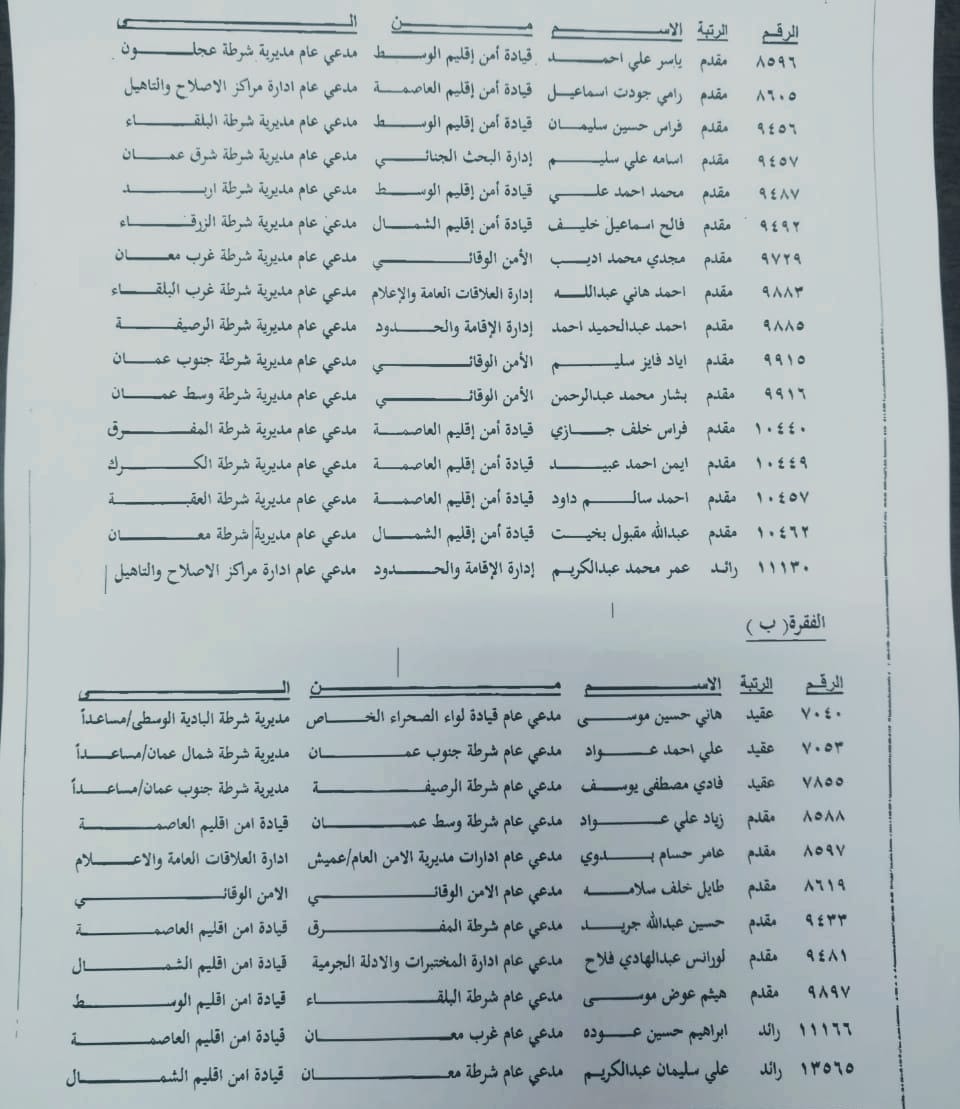 الرقم الرتبة الاسم من الى
٨٥٩٦ مقدم ياسر علي احمد قيادة أمن إقليم الوسط مدعي عام مديرية شرطة عجلون
٨٦٠٥ مقدم رامي جودت اسماعيل قيادة أمن إقليم العاصمة مدعي عام ادارة مراكز الاصلاح والتاهيل
٩٤٥٦ مقدم فراس حسين سليمان قيادة أمن إقليم الوسط مدعي عام مديرية شرطة البلقاء
٩٤٥٧ مقدم اسامه علي سليم إدارة البحث الجنائي مدعي عام مديرية شرطة شرق عمان
٩٤٨٧ مقدم محمد احمد علي قيادة أمن إقليم الوسط مدعي عام مديرية شرطة اربد
٩٤٩٢ مقدم فالح اسماعيل خليف قيادة أمن إقليم الشمال مدعي عام مديرية شرطة الزرقاء
٩٧٢٩ مقدم مجدي محمد اديب الأمن الوقائي مدعي عام مديرية شرطة غرب معان
٩٨٨٣ مقدم احمد هاني عبدالله إدارة العلاقات العامة والإعلام مدعي عام مديرية شرطة غرب البلقاء
٩٨٨٥ مقدم احمد عبدالحميد احمد إدارة الإقامة والحدود مدعي عام مديرية شرطة الرصيفة
٩٩١٥ مقدم اياد فايز سليم الأمن الوقائي مدعي عام مديرية شرطة جنوب عمان
٩٩١٦ مقدم بشار محمد عبدالرحمن الأمن الوقائي مدعي عام مديرية شرطة وسط عمان
١٠٤٤٠ مقدم فراس خلف جازي قيادة أمن إقليم العاصمة مدعي عام مديرية شرطة المفرق
١٠٤٤٩ مقدم ايمن احمد عبيد قيادة أمن إقليم العاصمة مدعي عام مديرية شرطة الكرك
١٠٤٥٧ مقدم احمد سالم داود قيادة أمن إقليم العاصمة مدعي عام مديرية شرطة العقبة
١٠٤٦٢ مقدم عبدالله مقبول بخيت قيادة أمن إقليم الشمال مدعي عام مديرية شرطة معان
١١١٣٠ رائد عمر محمد عبدالكريم إدارة الإقامة والحدود مدعي عام ادارة مراكز الاصلاح والتاهيل
الفقرة( ب )
الرقم الرتبة الاسم من الى
٧٠٤٠ عقيد هاني حسين موسى مدعي عام قيادة لواء الصحراء الخاص مديرية شرطة البادية الوسطى/مساعداً
٧٠٥٣ عقيد علي احمد عواد مدعي عام شرطة جنوب عمان مديرية شرطة شمال عمان/مساعداً
٧٨٥٥ عقيد فادي مصطفى يوسف مدعي عام شرطة الرصيفة مديرية شرطة جنوب عمان/مساعداً
٨٥٨٨ مقدم زياد علي عواد مدعي عام شرطة وسط عمان قيادة امن اقليم العاصمة
٨٥٩٧ مقدم عامر حسام بدوي مدعي عام ادارات مديرية الامن العام/عميش ادارة العلاقات العامة والاعلام
٨٦١٩ مقدم طايل خلف سلامه مدعي عام الامن الوقائي الامن الوقائي
٩٤٣٣ مقدم حسين عبدالله جريد مدعي عام شرطة المفرق قيادة امن اقليم العاصمة
٩٤٨١ مقدم لورانس عبدالهادي فلاح مدعي عام ادارة المختبرات والادلة الجرمية قيادة امن اقليم الشمال
٩٨٩٧ مقدم هيثم عوض موسى مدعي عام شرطة البلقاء قيادة امن اقليم الوسط
١١١٦٦ رائد ابراهيم حسين عوده مدعي عام غرب معان قيادة امن اقليم العاصمة
١٣٥٦٥ رائد علي سليمان عبدالكريم مدعي عام شرطة معان قيادة امن اقليم الشمال